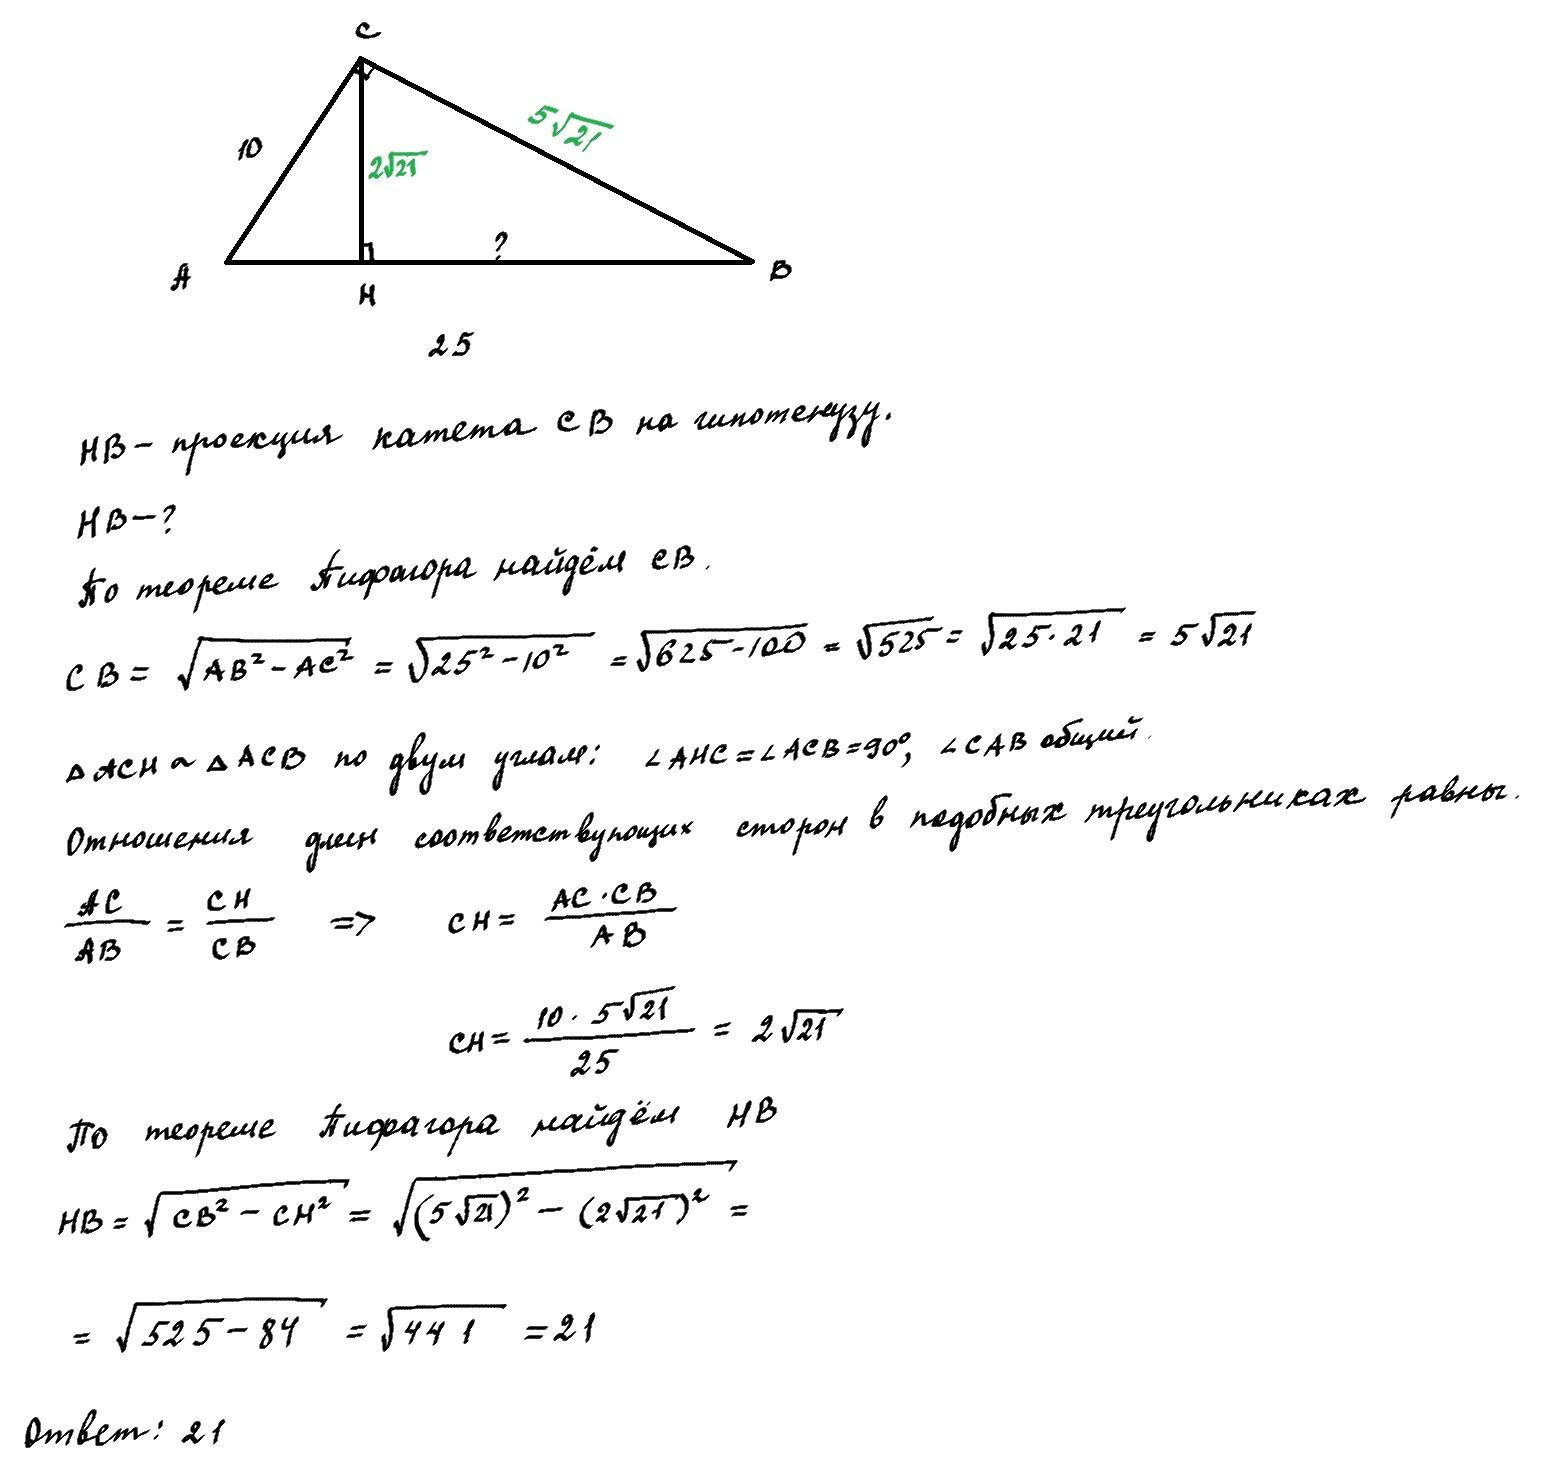 C
10
2√21
5√21
?
A
H
B
25
HB - проекция катета CB на гипотенузу.
HB - ?
По теореме Пифагора найдём CB.
CB = √(AB² - AC²) = √(25² - 10²) = √(625 - 100) = √525 = √(25·21) = 5√21
△ACH ~ △ACB по двум углам: ∠AHC = ∠ACB = 90°, ∠CAB общий.
Отношения длин соответствующих сторон в подобных треугольниках равны.
AC/AB = CH/CB => CH = AC·CB/AB
CH = 10·5√21/25 = 2√21
По теореме Пифагора найдём HB
HB = √(CB² - CH²) = √((5√21)² - (2√21)²) =
= √(525 - 84) = √441 = 21
Ответ: 21